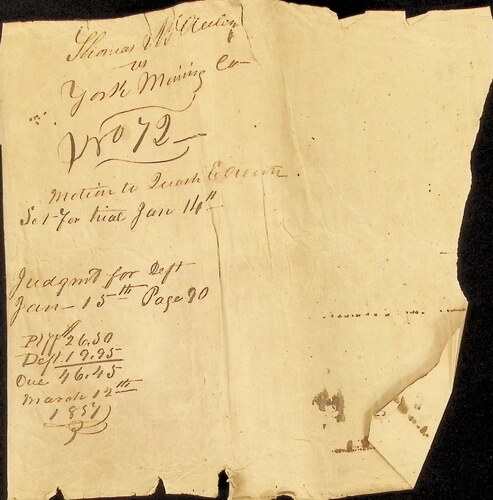 Thomas
vs
York Mining Co
No 72
Motion to Quash
Set for trial Jan 14th
Judgmt for Deft
Jan 15th Page 90
Plff 26.50
Deft. 19.95
Due 46.45
March 12th
1851